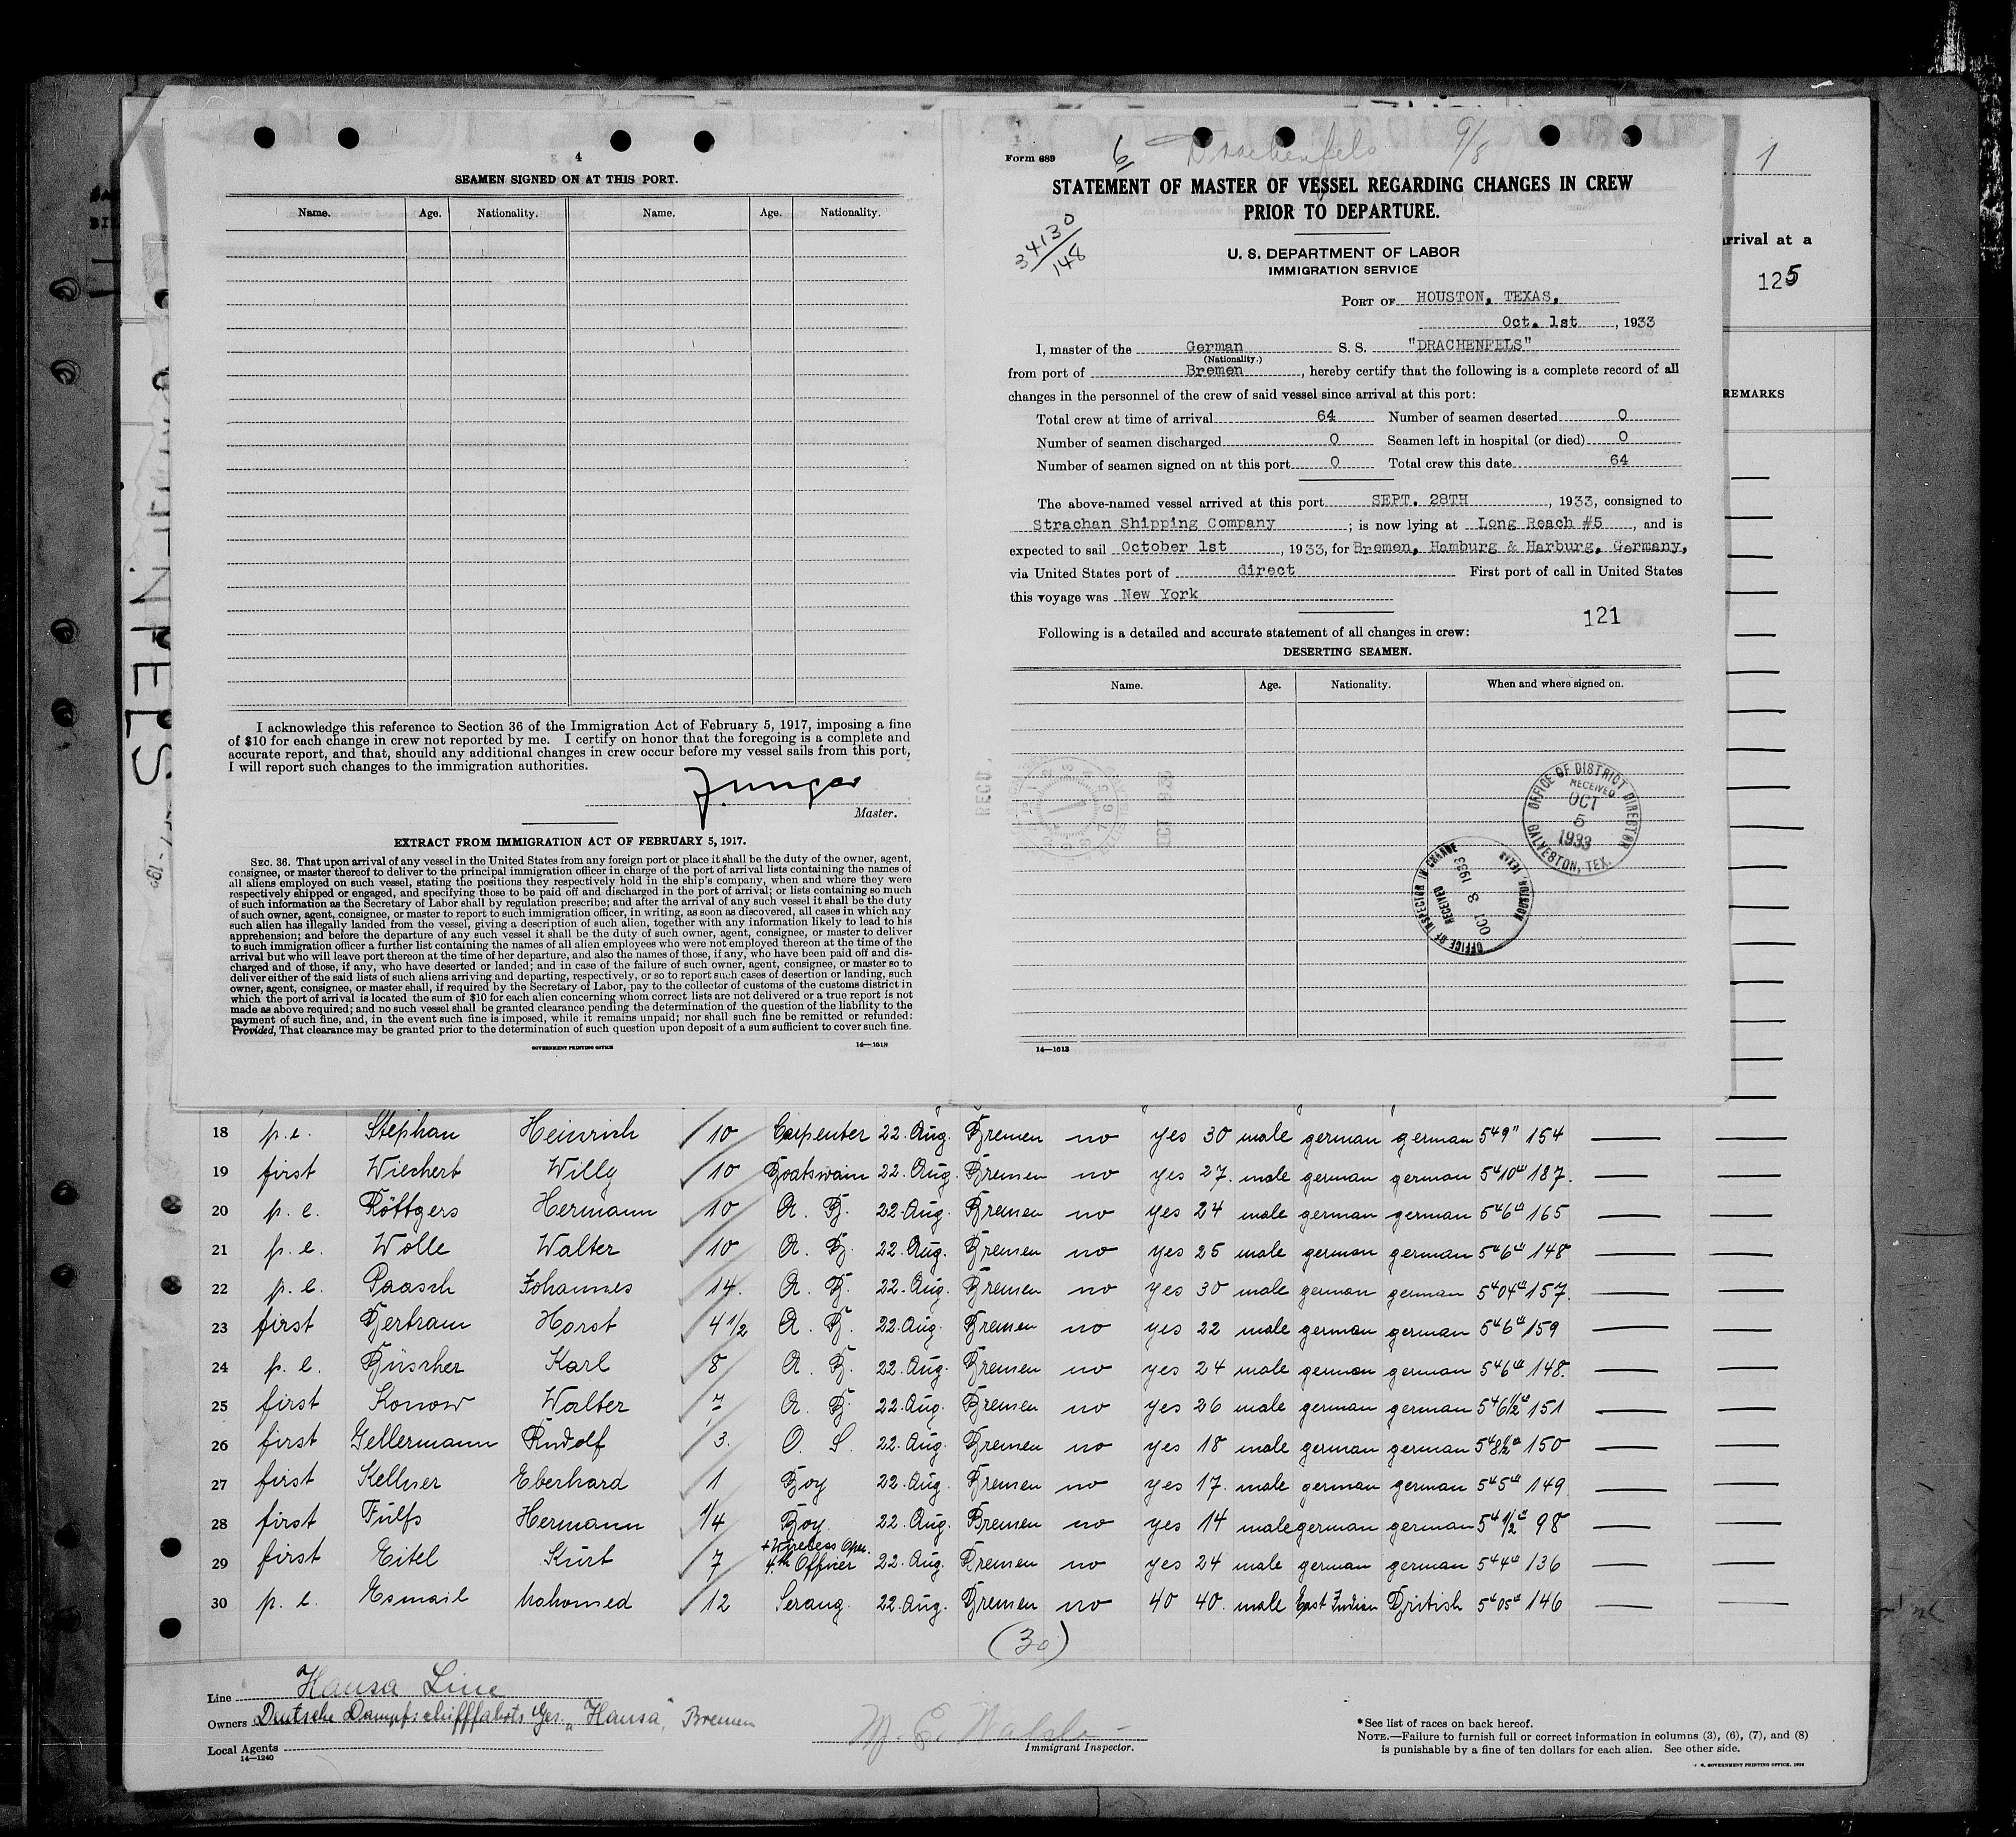 4
SEAMEN SIGNED ON AT THIS PORT.
Name. Age. Nationality. Name. Age. Nationality.
I acknowledge this reference to Section 36 of the Immigration Act of February 5, 1917, imposing a fine
of $10 for each change in crew not reported by me. I certify on honor that the foregoing is a complete and
accurate report, and that, should any additional changes in crew occur before my vessel sails from this port,
I will report such changes to the immigration authorities.
Master.
EXTRACT FROM IMMIGRATION ACT OF FEBRUARY 5, 1917.
SEC. 36. That upon arrival of any vessel in the United States from any foreign port or place it shall be the duty of the owner, agent,
consignee, or master thereof to deliver to the principal immigration officer in charge of the port of arrival lists containing the names of
all aliens employed on such vessel, stating the positions they respectively hold in the ship's company, when and where they were
respectively shipped or engaged, and specifying those to be paid off and discharged in the port of arrival; or lists containing so much
of such information as the Secretary of Labor shall by regulation prescribe; and after the arrival of any such vessel it shall be the duty
of such owner, agent, consignee, or master to report to such immigration officer, in writing, as soon as discovered, all cases in which any
such alien has illegally landed from the vessel, giving a description of such alien, together with any information likely to lead to his
apprehension; and before the departure of any such vessel it shall be the duty of such owner, agent, consignee, or master to deliver
to such immigration officer a further list containing the names of all alien employees who were not employed thereon at the time of the
arrival but who will leave port thereon at the time of her departure, and also the names of those, if any, who have been paid off and dis-
charged and of those, if any, who have deserted or landed; and in case of the failure of such owner, agent, consignee, or master so to
deliver either of the said lists of such aliens arriving and departing, respectively, or so to report such cases of desertion or landing, such
owner, agent, consignee, or master shall, if required by the Secretary of Labor, pay to the collector of customs of the customs district in
which the port of arrival is located the sum of $10 for each alien concerning whom correct lists are not delivered or a true report is not
made as above required; and no such vessel shall be granted clearance pending the determination of the question of the liability to the
payment of such fine, and, in the event such fine is imposed, while it remains unpaid; nor shall such fine be remitted or refunded:
Provided, That clearance may be granted prior to the determination of such question upon deposit of a sum sufficient to cover such fine.
GOVERNMENT PRINTING OFFICE 14—1613
Form 689 6 Drachenfels 9/8
STATEMENT OF MASTER OF VESSEL REGARDING CHANGES IN CREW
PRIOR TO DEPARTURE.
34130/148
U. S. DEPARTMENT OF LABOR
IMMIGRATION SERVICE
PORT OF HOUSTON, TEXAS,
Oct. 1st, 1933
I, master of the German S. S. "DRACHENFELS"
(Nationality.)
from port of Bremen, hereby certify that the following is a complete record of all
changes in the personnel of the crew of said vessel since arrival at this port:
Total crew at time of arrival 64 Number of seamen deserted 0
Number of seamen discharged 0 Seamen left in hospital (or died) 0
Number of seamen signed on at this port 0 Total crew this date 64
The above-named vessel arrived at this port SEPT. 28TH, 1933, consigned to
Strachan Shipping Company; is now lying at Long Reach #5, and is
expected to sail October 1st, 1933, for Bremen, Hamburg & Harburg, Germany,
via United States port of direct First port of call in United States
this voyage was New York
121
Following is a detailed and accurate statement of all changes in crew:
DESERTING SEAMEN.
Name. Age. Nationality. When and where signed on.
OFFICE OF DISTRICT DIRECTOR
RECEIVED
OCT
5
1933
GALVESTON, TEX.
OFFICE OF INSPECTOR IN CHARGE
RECEIVED
OCT 3 1933
HOUSTON, TEXAS
REC'D
14—1613
1
rrival at a
125
REMARKS
NFELS
18 p.e. Stephan Heinrich 10 Carpenter 22. Aug. Bremen no yes 30 male german german 5'9" 154
19 first Wiechert Willy 10 Boatswain 22. Aug. Bremen no yes 27. male german german 5'10" 187.
20 p. e. Röttgers Hermann 10 A. B. 22. Aug. Bremen no yes 24 male german german 5'6" 165
21 p. e. Wolle Walter 10 A. B. 22. Aug. Bremen no yes 25 male german german 5'6" 148
22 p. e. Paasch Johannes 14. A. B. 22. Aug. Bremen no yes 30 male german german 5'04" 157.
23 first Bertram Horst 4 1/2 A. B. 22. Aug. Bremen no yes 22 male german german 5'6" 159
24 p. e. Büscher Karl 8 A. B. 22. Aug. Bremen no yes 24 male german german 5'6" 148.
25 first Konow Walter 7 A. B. 22. Aug. Bremen no yes 26 male german german 5'6½" 151
26 first Gellermann Rudolf 3. O. S. 22. Aug. Bremen no yes 18 male german german 5'8½" 150
27 first Kellner Eberhard 1 Boy 22. Aug. Bremen no yes 17. male german german 5'5" 149
28 first Fulfs Hermann 1/4 Boy 22. Aug. Bremen no yes 14 male german german 5' 1/2" 98
29 first Eitel Kurt 7 + Wireless Oper. 4.th Officer 22. Aug. Bremen no yes 24 male german german 5'4" 136
30 p. e. Esmail Mahomed 12 Serang. 22. Aug. Bremen no 40 40. male East Indian British 5'05" 146
(30)
Line Hansa Line
Owners Deutsche Dampfschifffahrts Ges. „Hansa", Bremen
Local Agents
14—1240
M. E. Walsh
Immigrant Inspector.
*See list of races on back hereof.
NOTE.—Failure to furnish full or correct information in columns (3), (6), (7), and (8)
is punishable by a fine of ten dollars for each alien. See other side.
U. S. GOVERNMENT PRINTING OFFICE.